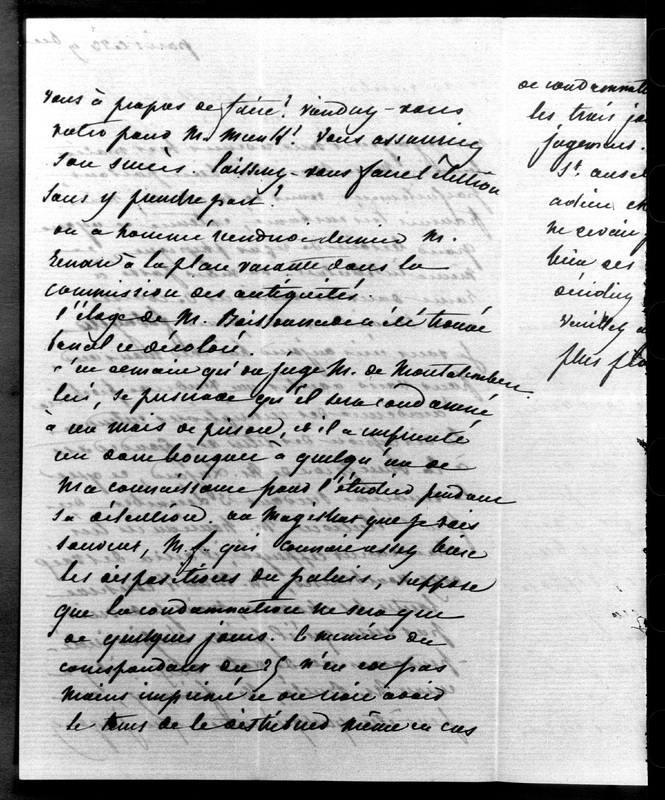 vous à propos de faire? viendrez-vous
votre pour M. Munk? vous assurerez
son succès. laissez-vous faire l'élection
sans y prendre part?
on a nommé vendredi dernier M.
Renan à la place vacante dans la
commission des antiquités.
l'éloge de M. Boissonade a été trouvé
pâle et décoloré.
c'est demain qu'on juge M. de Montalembert.
lui, se persuade qu'il sera condamné
à un mois de prison, et il a emprunté
un dom bouquet à quelqu'un de
ma connaissance pour l'étudier pendant
sa détention. un magistrat que je vois
souvent, M. f. qui connait assez bien
les dispositions du palais, suppose
que la condamnation ne sera que
de quelques jours. le numéro du
correspondant du 25 n'en est pas
moins imprimé et on croit avoir
le tems de le distribuer même en cas
de condamnation
les trois jo
jugemens.
St. ansel
adieu ch
ne devain
bien des
décidez
veuillez a
plus pla